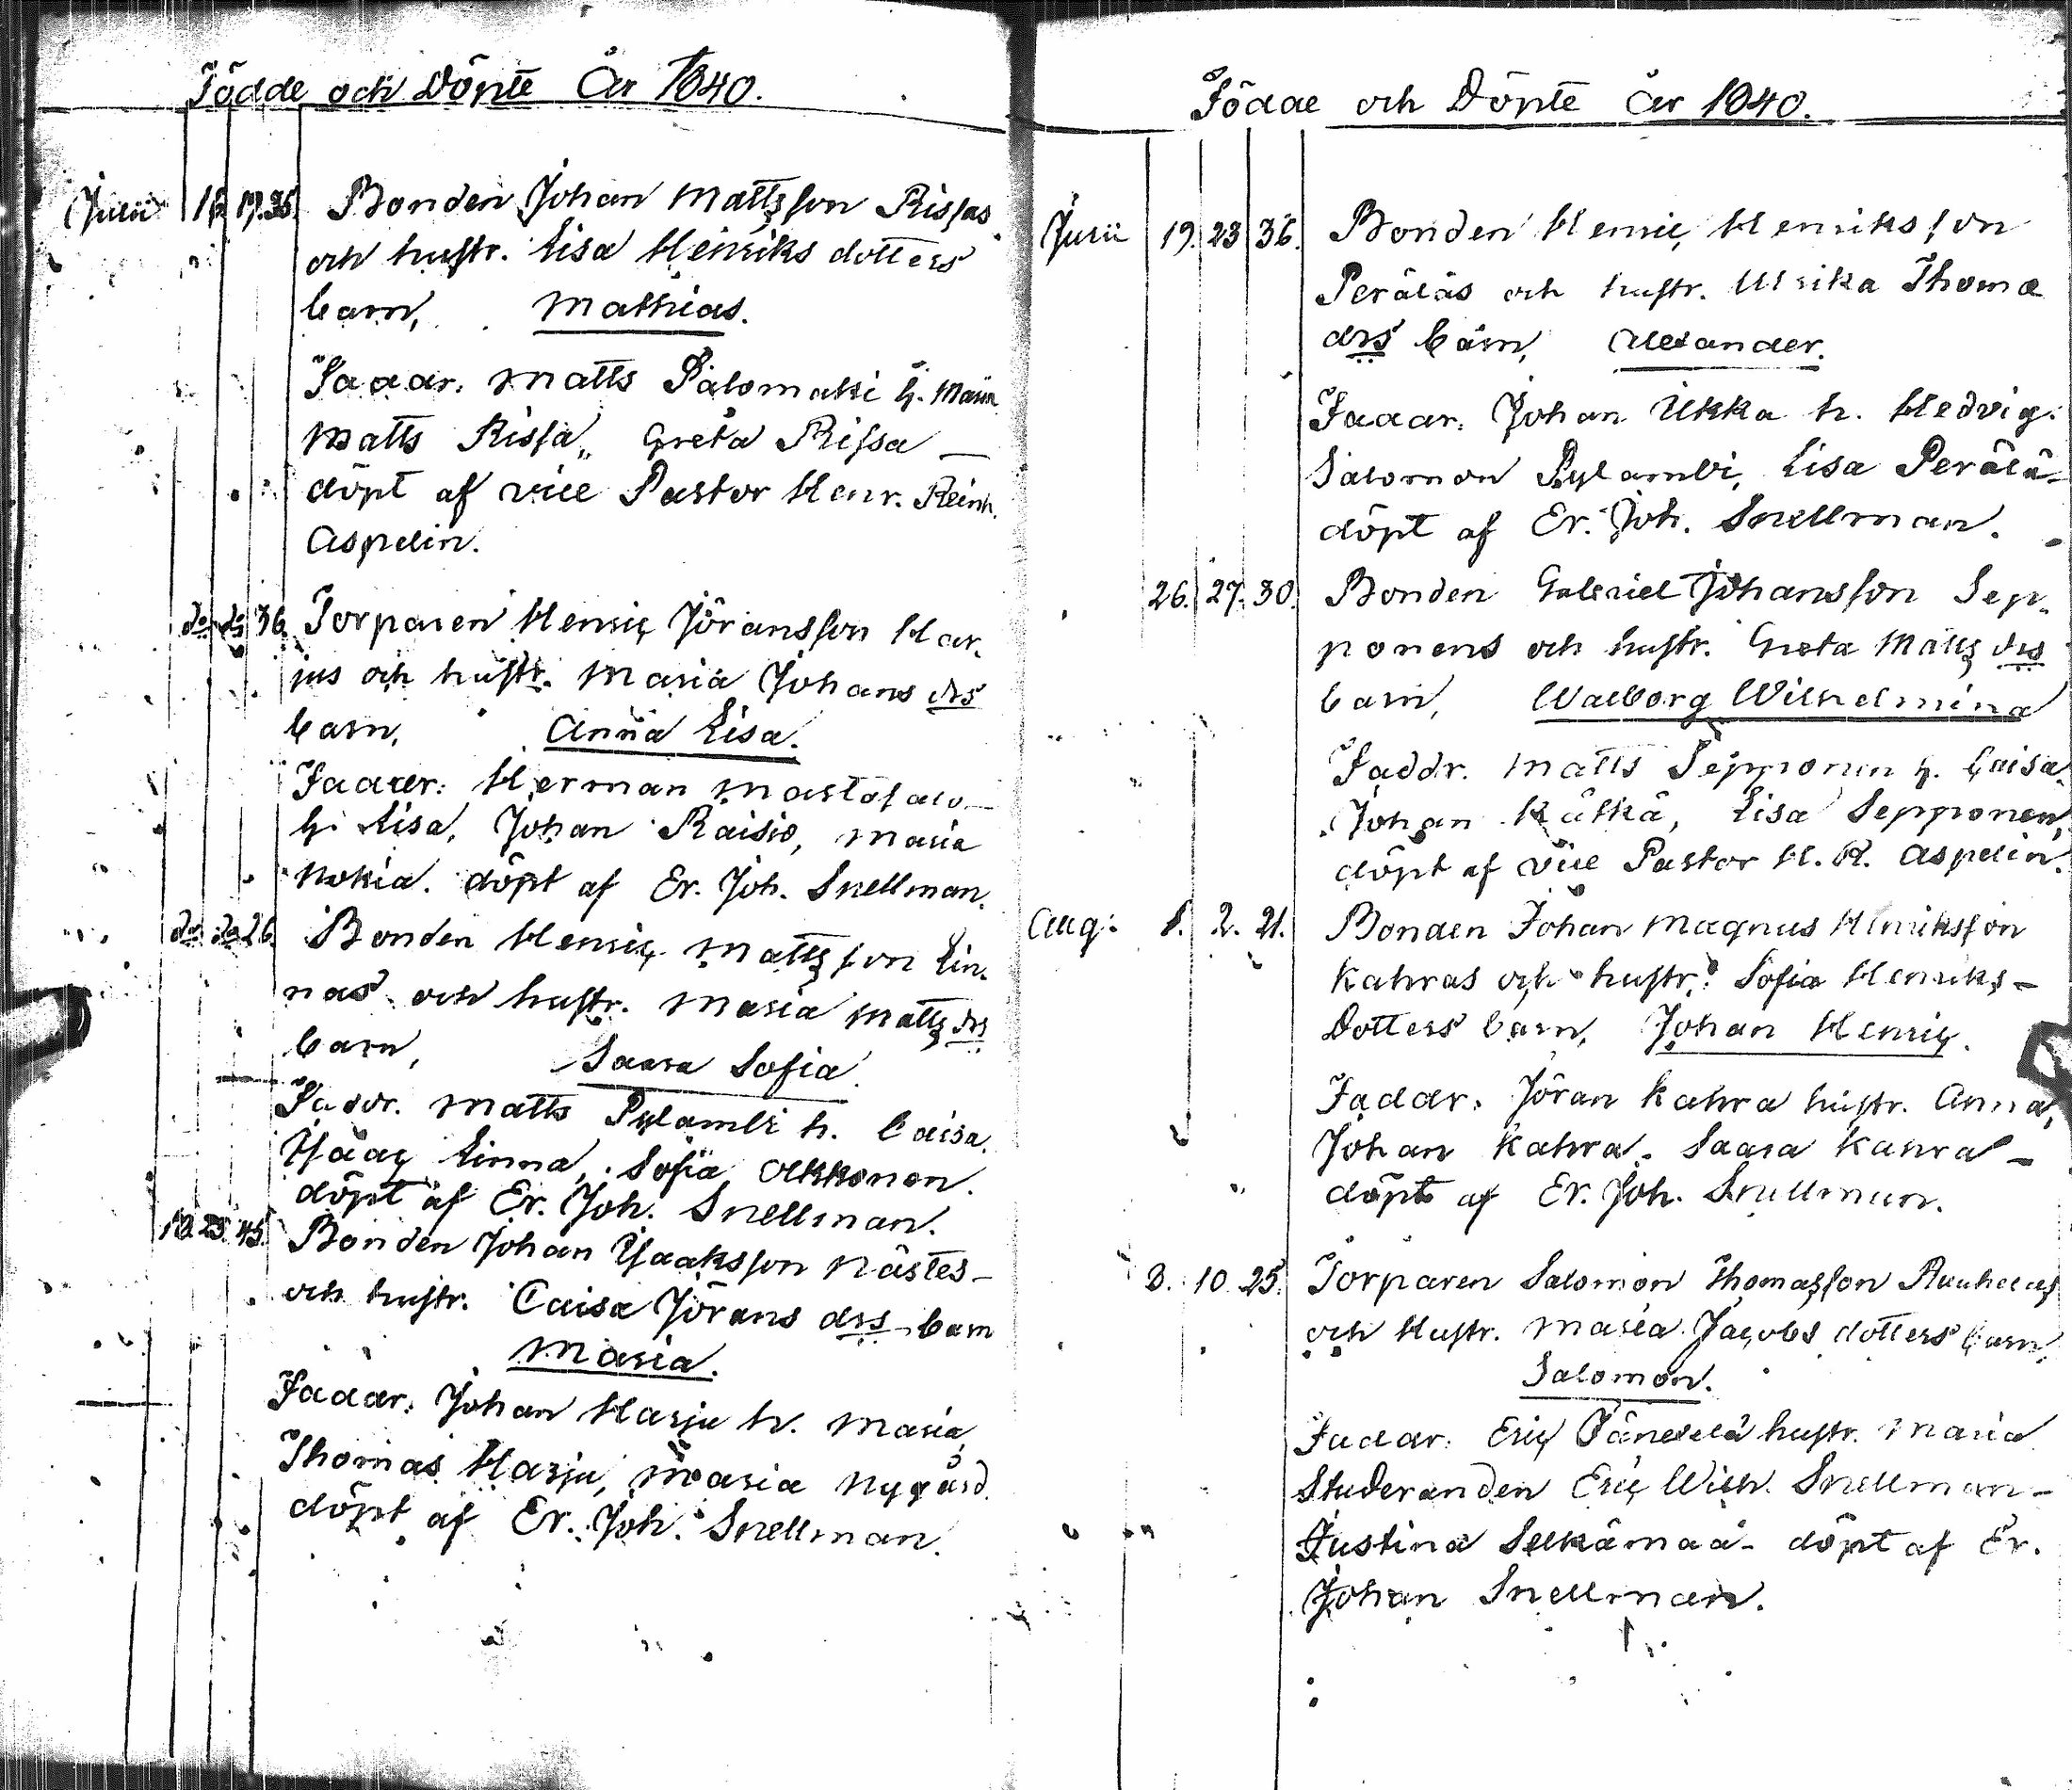 Födde och Döpte År 1840.
Julii 16. 17. 35. Bonden Johan Mattsson Rissas
och hustr. Lisa Henriks dotters
barn, Mathias.
Faddr. Matts Palomäki h. Maria
Matts Rissa, Greta Rissa —
döpt af vice Pastor Henr. Reinh.
Aspelin.
do do 36. Torparen Henric Jöransson Har-
jus och hustr. Maria Johans drs
barn, Anna Lisa.
Faddr: Herman
h. Lisa, Johan Raisio, Maria
Nokia. döpt af Er. Joh. Snellman.
do do 26. Bonden Henric Mattsson Lin-
nas och hustr. Maria Matts drs
barn, Saara Sofia.
Faddr. Matts Pylambi h. Caisa.
Isaac Linna, Sofia Okkonen.
döpt af Er. Joh. Snellman.
18. 23. 45. Bonden Johan Isaaksson Nästes-
och hustr. Caisa Jörans drs barn
Maria.
Faddr. Johan Harju h. Maria,
Thomas Harju, Maria Nygård.
döpt af Er. Joh. Snellman.
Födde och Döpte År 1840.
Julii 19. 23 36. Bonden Henric Henriksson
Peräläs och hustr. Ulrika Thomæ
drs barn, Alexander.
Faddr. Johan Ukka h. Hedvig.
Salomon Pylambi, Lisa Perälä-
döpt af Er. Joh. Snellman.
26. 27. 30. Bonden Gabriel Johansson Sep-
ponens och hustr. Greta Matts drs
barn, Walborg Wilhelmina
Faddr. Matts Sepponen h. Caisa,
Johan Kälkä, Lisa Sepponen,
döpt af vice Pastor H. R. Aspelin.
Aug: 1. 2. 21. Bonden Johan Magnus Henriksson
Kahras och hustr. Sofia Henriks-
Dotters barn, Johan Henric.
Faddr. Jöran Kahra hustr. Anna,
Johan Kahra. Saara Kahra-
döpt af Er. Joh. Snellman.
8. 10. 25. Torparen Salomon Thomasson
och Hustr. Maria Jacobs dotters barn,
Salomon.
Faddr. Eric hustr. Maria
Studeranden Eric Wilh. Snellman-
Justina Selkämaa- döpt af Er.
Johan Snellman.